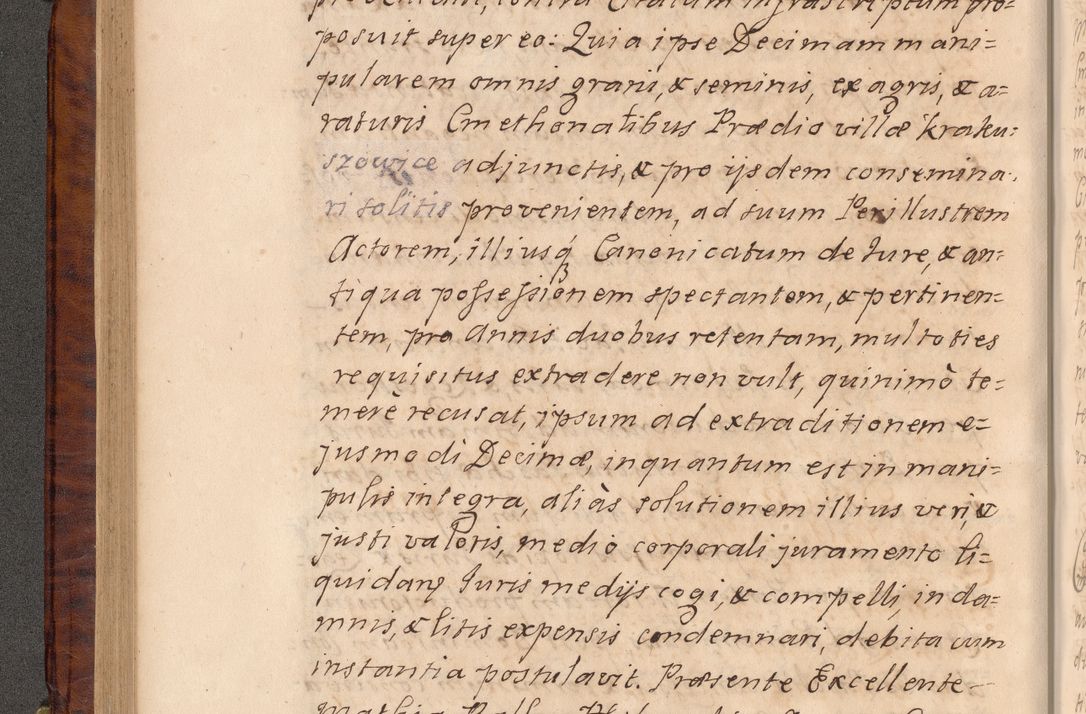 posuit super eo: Quia ipse Decimam mani=
pularem omnis grani, & seminis, ex agris, & a=
raturis Cmethonalibus Prædio villæ kraku=
szowice adjunctis, & pro ijsdem consemina=
ri solitis provenientem, ad suum Perillustrem
Actorem, illiusq́ Canonicatum de Jure, & an=
tiqua possessionem spectantem, & pertinen=
tem, pro Annis duobus retentam, multoties
requisitus extradere non vult, quinimò te=
merè recusat, ipsum ad extraditionem e=
jusmodi Decimæ, inquantum est in mani=
pulis integra, aliàs solutionem illius veri, &
justi valoris, medio corporali juramento li=
quidandꝭ Juris medijs cogi, & compelli, in da=
mnis, & litis expensis condemnari, debita cum
instantia postulavit. Præsente Excellente